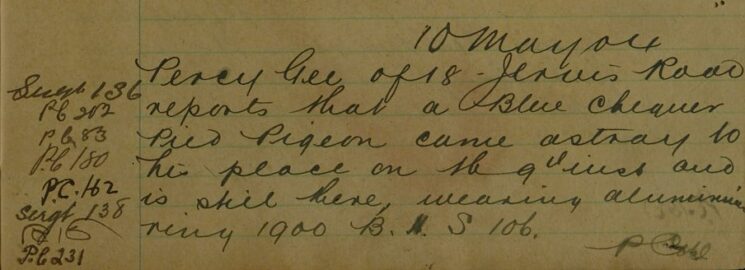 10 May 04
Percy Gee of 18 Jervis Road
reports that a Blue Chequer
Pied Pigeon came astray to
his place on the 9th inst and
is still there, wearing aluminium
ring 1900 B. S 106.
Sergt 136
P.C 202
P.C 83
P.C 180
P.C. 162
Sergt 138
P.C 231